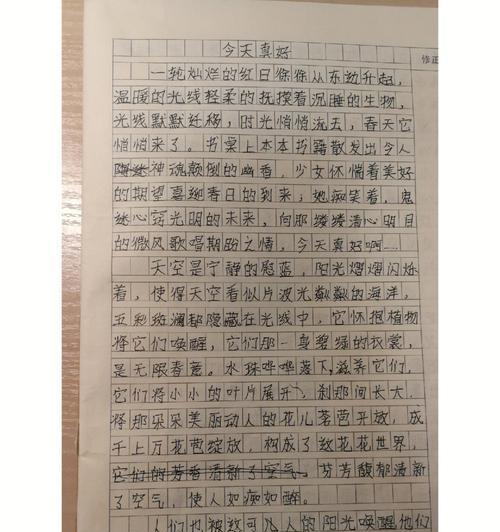 今天真好
修正
一轮灿烂的红日徐徐从东边升起，
温暖的光线轻柔的抚摸着沉睡的生物，
光线默默迁移，时光悄悄流去，春天它
悄悄来了。书桌上本本书籍散发出令人
神魂颠倒的幽香，少女怀惴着美好
的期望喜迎春日的到来；她痴笑着，鬼
迷心窍光明的未来，向那缕缕清心明目
的微风歌唱期盼之情，今天真好啊……
天空是宁静的慰蓝，阳光熠熠闪烁
着，使得天空看似片波光粼粼的海洋，
五彩斑澜都隐藏在光线中，它怀抱植物
将它们唤醒，它们那一身碧绿的衣裳，
是无限春意。水珠哗哗落下，滋养它们，
它们将小小的叶片展开，刹那间长大，
将那朵朵美丽动人的花儿茗苞开放，成
千上万花苞绽放，构成了纹花花世界，
它们的芳香清新了空气，芬芳馥郁清新
了空气，使人如痴如醉。
人们也被纹可人的阳光唤醒他们